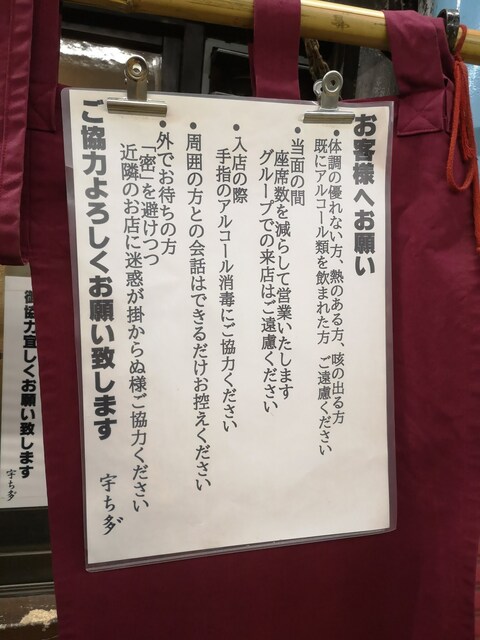 お客様へお願い
・体調の優れない方、熱のある方、咳の出る方
既にアルコール類を飲まれた方 ご遠慮ください
・当面の間
座席数を減らして営業いたします
グループでの来店はご遠慮ください
・入店の際
手指のアルコール消毒にご協力ください
・周囲の方との会話はできるだけお控えください
・外でお待ちの方
「密」を避けつつ
近隣のお店に迷惑が掛からぬ様ご協力ください
ご協力よろしくお願い致します
宇ち多゙
御協力宜しくお願い致します
宇ち多゙